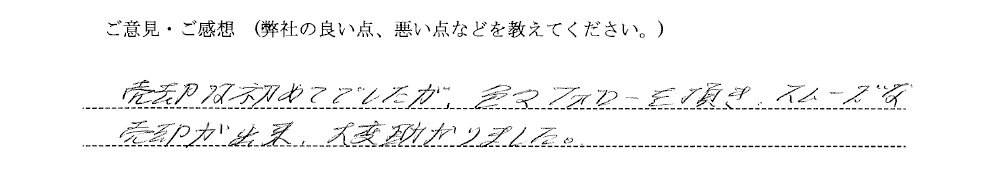 ご意見・ご感想　(弊社の良い点、悪い点などを教えてください。)
売却は初めてでしたが、色々フォローを頂き、スムーズな
売却が出来、大変助かりました。